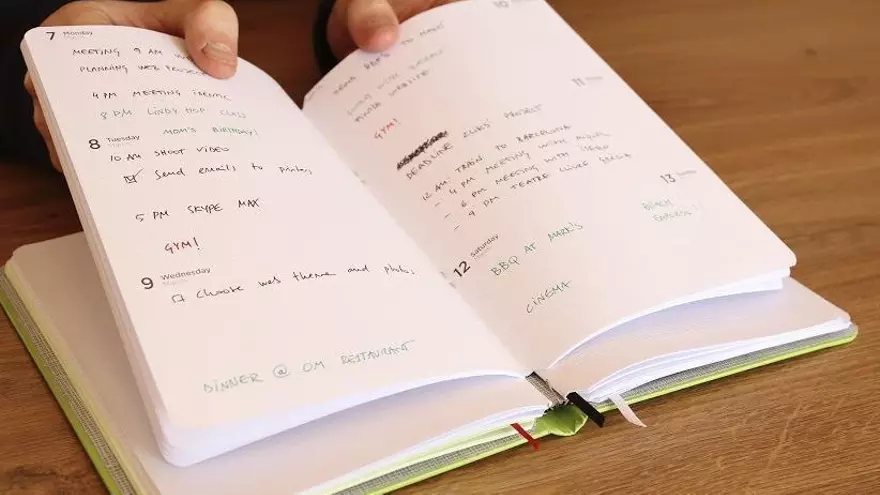 7 Monday
MEETING 9 AM
PLANNING WEB PROJECT
4 PM MEETING
8 PM LINDY HOP CLASS
8 Tuesday MOM'S BIRTHDAY!
10 AM SHOOT VIDEO
Send emails to printers
5 PM SKYPE MAX
GYM!
9 Wednesday
March
Choose web theme and photos
DINNER @ OM RESTAURANT
10
TO MARK!
WITH
WEBSITE
GYM!
11
DEADLINE PROJECT
12 AM: TRAIN TO BARCELONA
- 4 PM MEETING WITH MIQUEL
- 6 PM MEETING WITH
- 9 PM TEATRE LLIURE
12 Saturday
BBQ AT MARK'S
CINEMA
13
BEACH